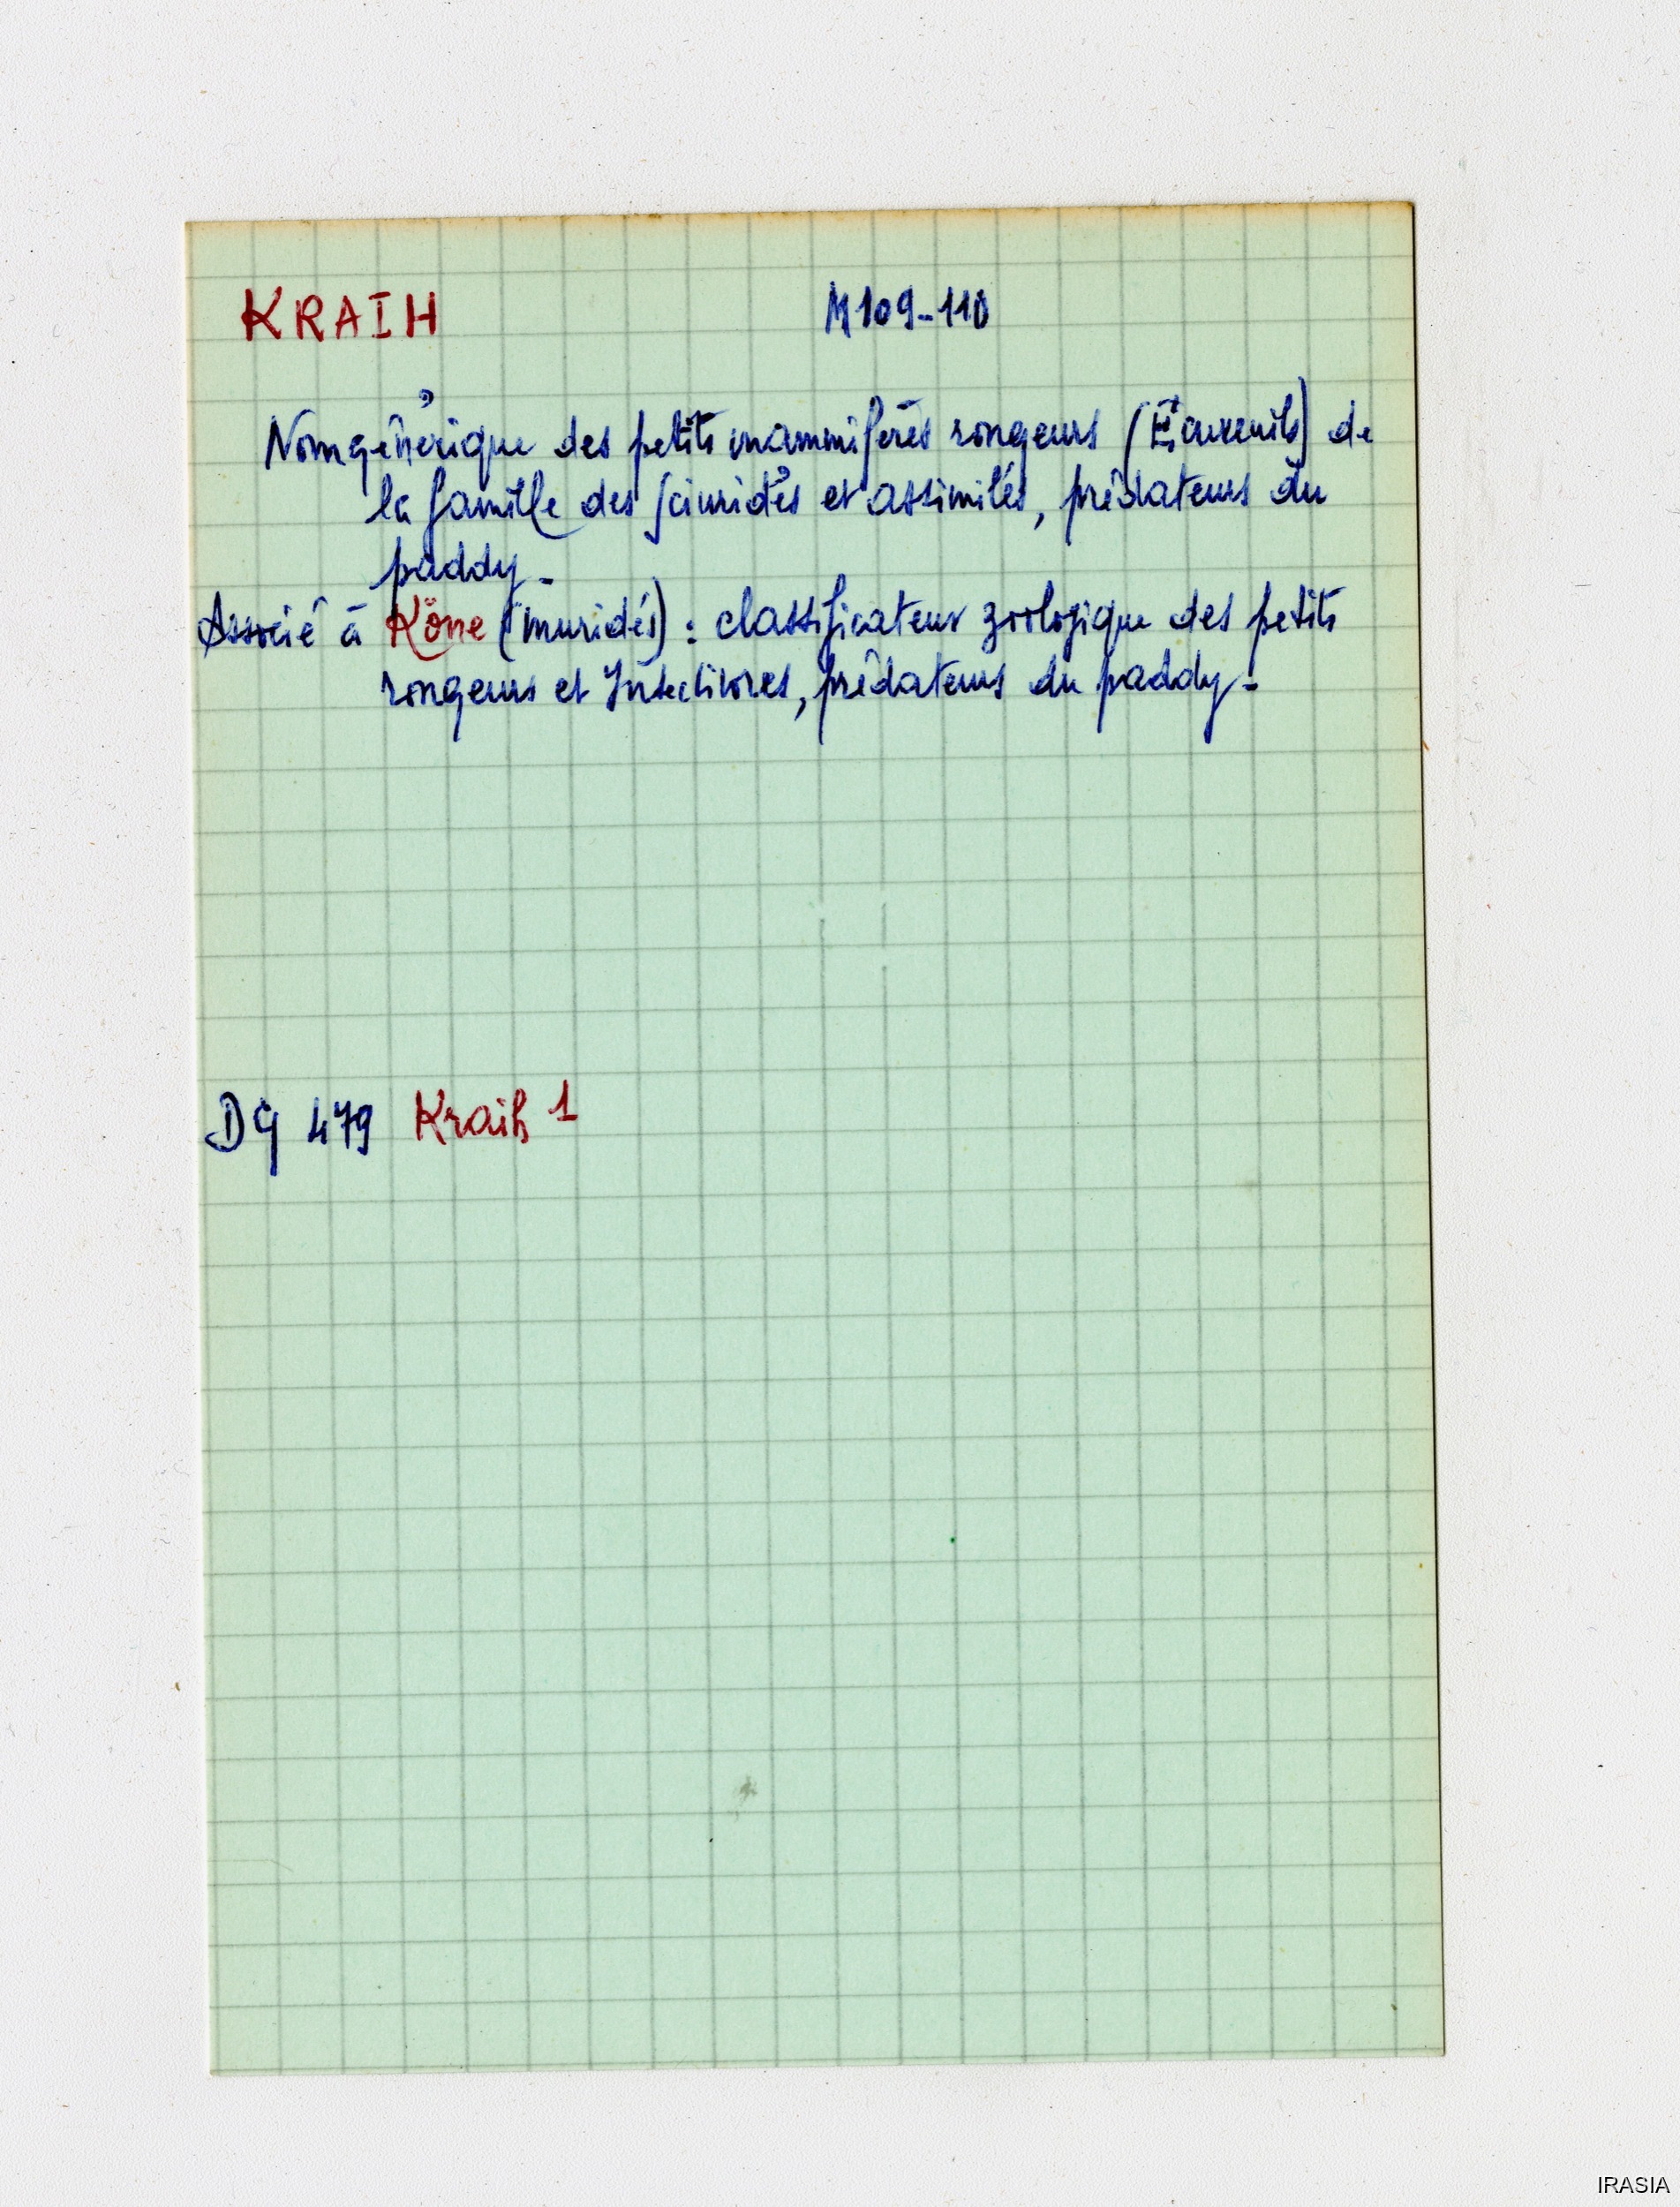 KRAIH M109-110
Nom générique des petits mammifères rongeurs (Écureuils) de
la famille des sciuridés et assimilés, prédateurs du
paddy -
Associé à Köne (muridés) : classificateur zoologique des petits
rongeurs et Insectivores, prédateurs du paddy -
DG 479 Kraih 1
IRASIA